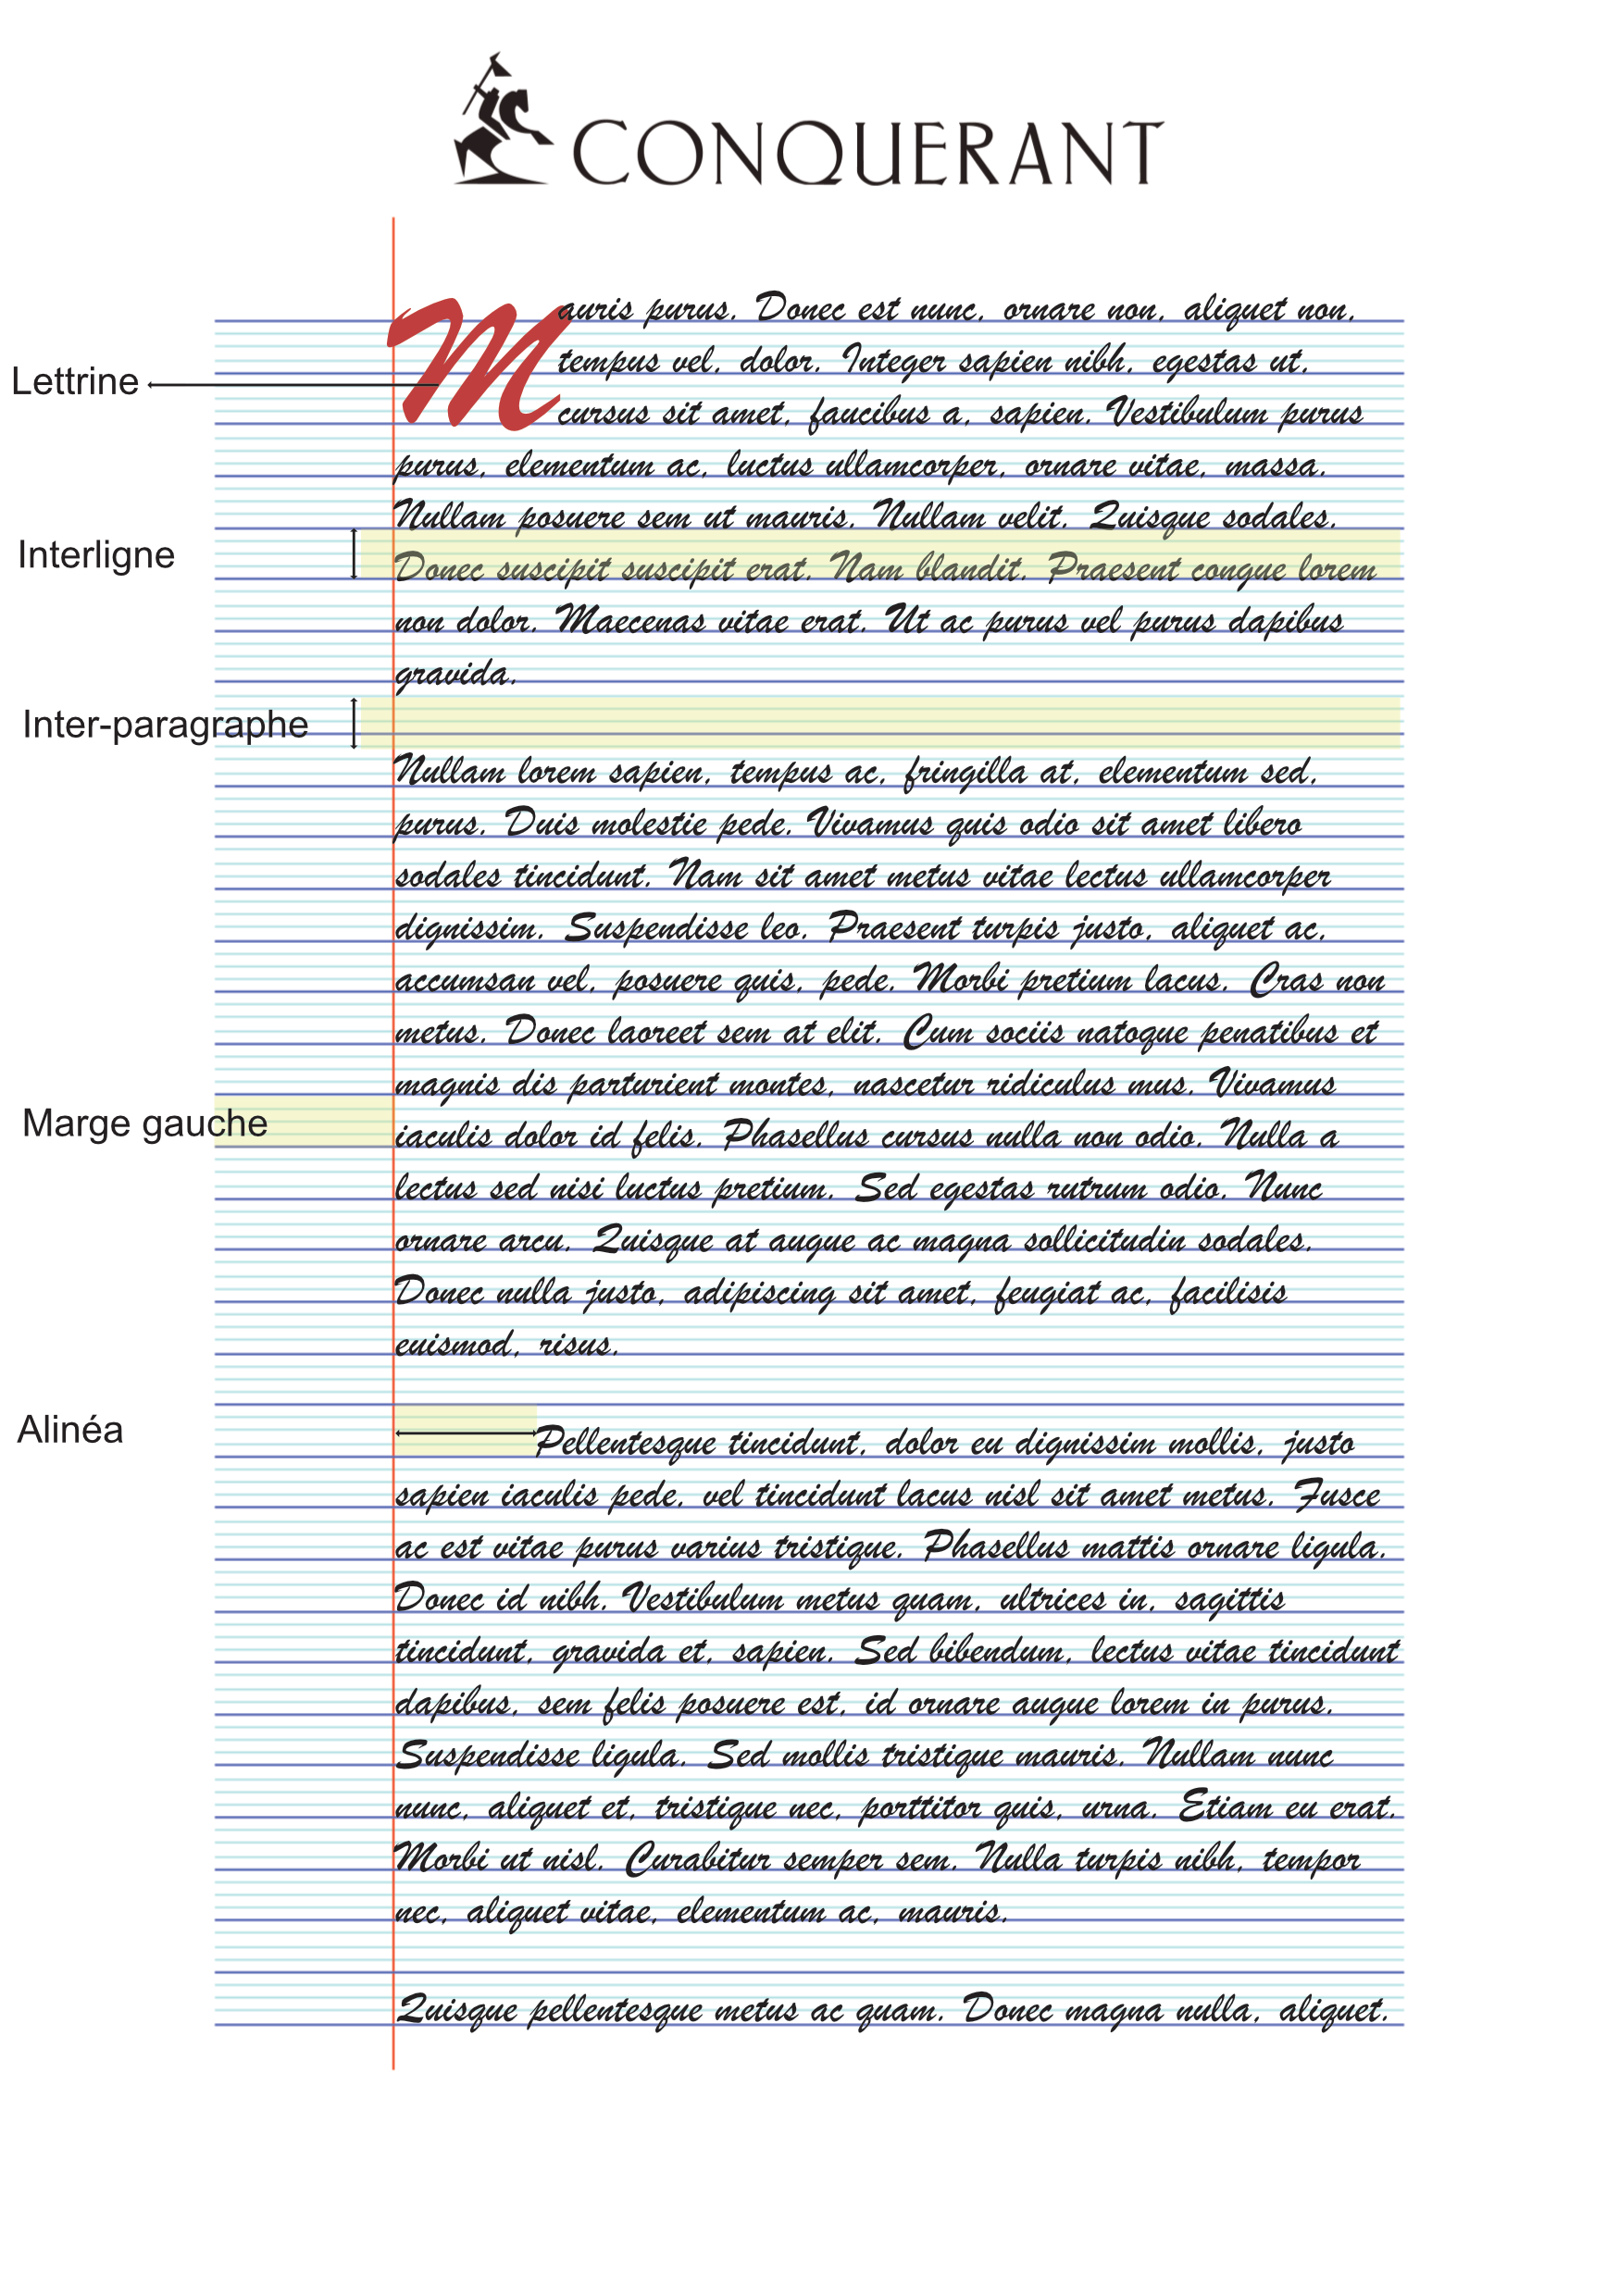 CONQUERANT
Mauris purus. Donec est nunc, ornare non, aliquet non,
tempus vel, dolor. Integer sapien nibh, egestas ut,
Lettrine
cursus sit amet, faucibus a, sapien. Vestibulum purus
purus, elementum ac, luctus ullamcorper, ornare vitae, massa.
Nullam posuere sem ut mauris. Nullam velit. Quisque sodales.
Interligne
Donec suscipit suscipit erat. Nam blandit. Praesent congue lorem
non dolor. Maecenas vitae erat. Ut ac purus vel purus dapibus
gravida.
Inter-paragraphe
Nullam lorem sapien, tempus ac, fringilla at, elementum sed,
purus. Duis molestie pede. Vivamus quis odio sit amet libero
sodales tincidunt. Nam sit amet metus vitae lectus ullamcorper
dignissim. Suspendisse leo. Praesent turpis justo, aliquet ac,
accumsan vel, posuere quis, pede. Morbi pretium lacus. Cras non
metus. Donec laoreet sem at elit. Cum sociis natoque penatibus et
magnis dis parturient montes, nascetur ridiculus mus. Vivamus
Marge gauche
iaculis dolor id felis. Phasellus cursus nulla non odio. Nulla a
lectus sed nisi luctus pretium. Sed egestas rutrum odio. Nunc
ornare arcu. Quisque at augue ac magna sollicitudin sodales.
Donec nulla justo, adipiscing sit amet, feugiat ac, facilisis
euismod, risus.
Alinéa
Pellentesque tincidunt, dolor eu dignissim mollis, justo
sapien iaculis pede, vel tincidunt lacus nisl sit amet metus. Fusce
ac est vitae purus varius tristique. Phasellus mattis ornare ligula.
Donec id nibh. Vestibulum metus quam, ultrices in, sagittis
tincidunt, gravida et, sapien. Sed bibendum, lectus vitae tincidunt
dapibus, sem felis posuere est, id ornare augue lorem in purus.
Suspendisse ligula. Sed mollis tristique mauris. Nullam nunc
nunc, aliquet et, tristique nec, porttitor quis, urna. Etiam eu erat.
Morbi ut nisl. Curabitur semper sem. Nulla turpis nibh, tempor
nec, aliquet vitae, elementum ac, mauris.
Quisque pellentesque metus ac quam. Donec magna nulla, aliquet.